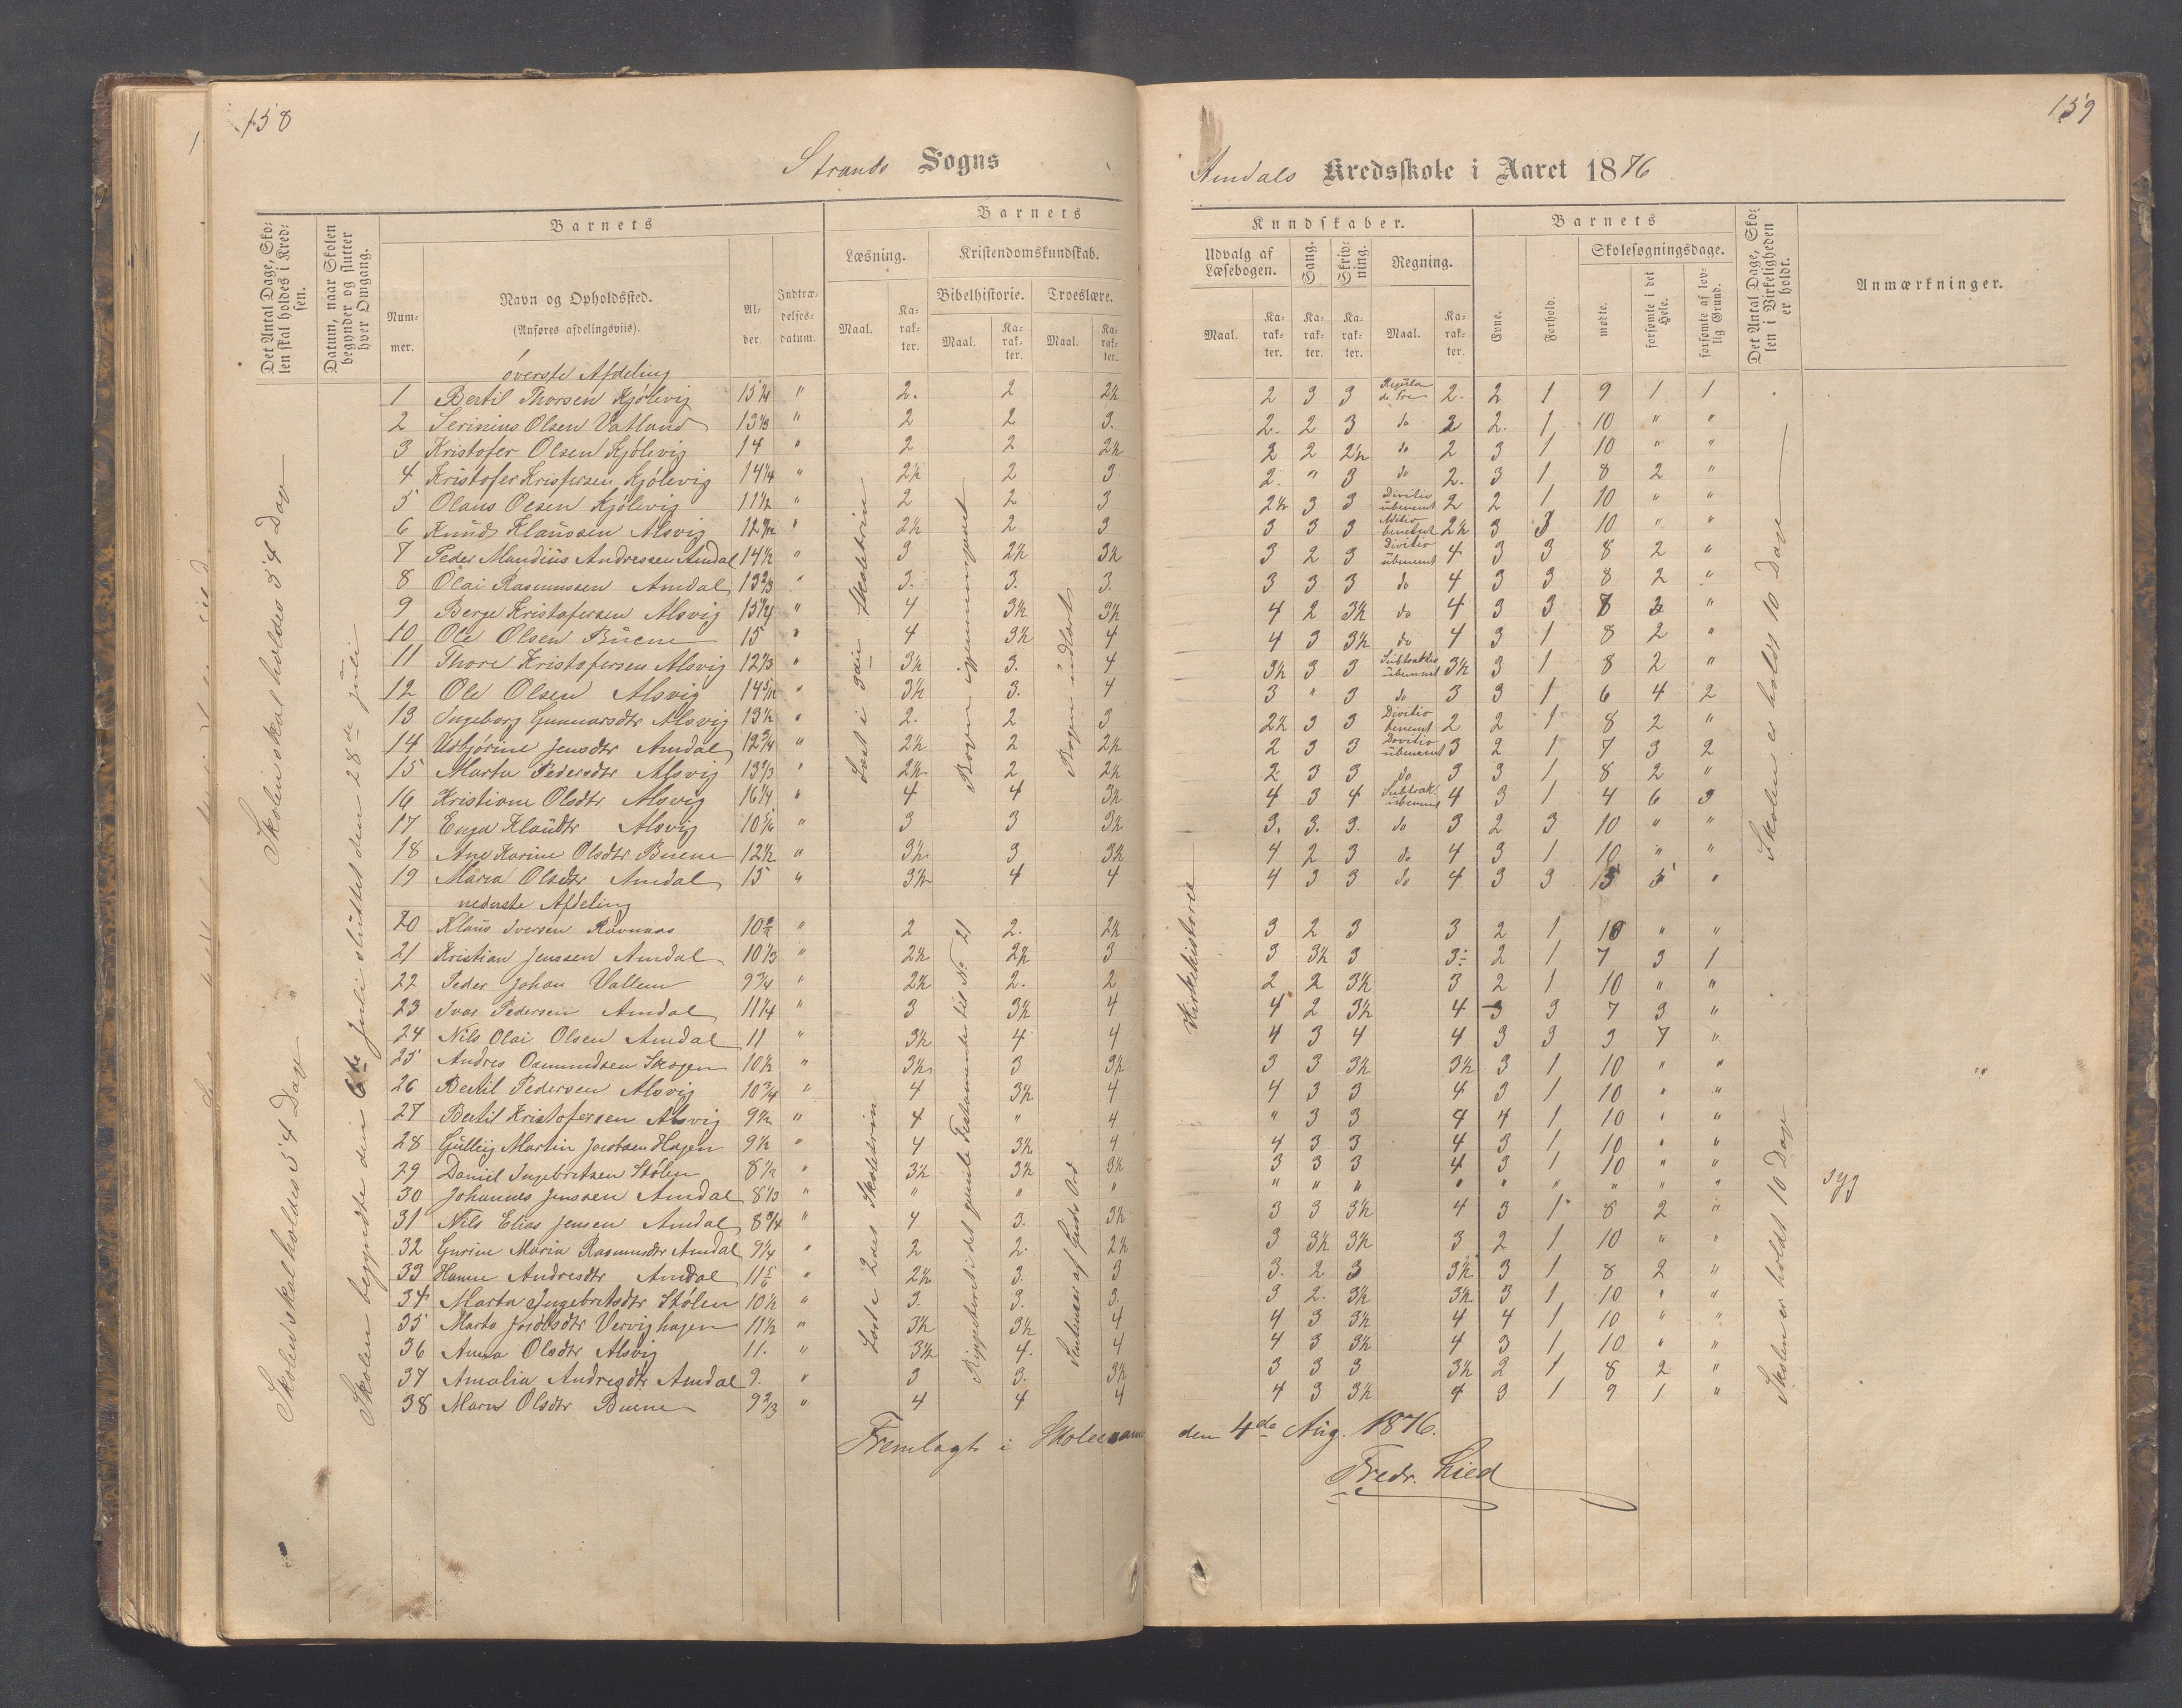 158
Strands Sogns
Det Antal Dage, Sko-
len skal holdes i Kred-
sen.
Datum, naar Skolen
begynder og slutter
hver Omgang.
Barnets
Num-
mer.
Navn og Opholdssted.
(Anføres afdelingsviis).
Al-
der.
Indtræ-
delses-
datum.
Barnets
Læsning.
Maal.
Ka-
rak-
ter.
Kristendomskundskab.
Bibelhistorie.
Maal.
Ka-
rak-
ter.
Troeslære.
Maal.
Ka-
rak-
ter.
øverste Afdeling
1 Bertil Thorsen Kjølevig 15 1/4 " 2. 2 2½
2 Serinius Olsen Vatland 13 1/3 " 2 2 3.
3 Kristofer Olsen Kjølevig 14 " 2 2 2½
4 Kristofer Kristofersen Kjølevig 14 1/4 " 2½ 2 3
5 Olaus Olsen Kjølevig 11 1/2 " 2 2 3
6 Knud Klaussen Alsvig " 2½ 2 3
7 Peder Mandius Andressen Amdal 14 1/2 " 3 2½ 3½
8 Olai Rasmussen Amdal 13 2/3 " 3. 3. 3.
9 Berge Kristofersen Alsvig " 4 3½ 3½
10 Ole Olsen Buene 15 " 4 3½ 4
11 Thore Kristofersen Alsvig 12 1/3 " 3½ 3. 4
12 Ole Olsen Alsvig " 3½ 3. 4
13 Ingeborg Gunnarsdtr Alsvig 13 1/2 " 2. 2 3
14 Jensdtr Amdal 12 3/4 " 2½ 2 2½
15 Marta Pedersdtr Alsvig " 2½ 2 2½
16 Kristiane Olsdtr Alsvig 16 1/4 " 4 4 3½
17 Klausdtr Alsvig 10 5/6 " 3 3 3½
18 Ane Karine Olsdtr Buene 12 1/2 " 3½ 3 3½
19 Maria Olsdtr Amdal 15 " 3½ 4 4
nederste Afdeling
20 Klaus Iversen " 2 2. 2½
21 Kristian Jenssen Amdal 10 1/3 " 2½ 2½ 3
22 Peder Johan 9 3/4 " 2½ 2. 2
23 Ivar Pedersen Amdal 11 1/4 " 3 3½ 4
24 Nils Olai Olsen Amdal 11 " 3½ 4 4
25 Andres Osmundsen Skogen 10 1/2 " 3½ 3 3½
26 Bertil Pedersen Alsvig 10 3/4 " 4 3½ 4
27 Bertil Kristofersen Alsvig 9 1/2 " 4 " 4
28 Gulleig Martin Jacobsen Hagen 9 1/2 " 4 3½ 4
29 Daniel Ingebretsen Stølen 8 1/2 " 3½ 3½ 3½
30 Johannes Jenssen Amdal 8 1/3 " " " "
31 Nils Elias Jensen Amdal 8 3/4 " 4 3. 3½
32 Gurine Maria Rasmusdtr Amdal 9 1/4 " 2 2. 2½
33 Hanne Andresdtr Amdal 11 5/6 " 2½ 3. 3
34 Marta Ingebretsdtr Stølen 10 1/2 " 3. 3. 3.
35 Marta Jacobsdtr 11 1/2 " 3½ 3½ 4
36 Anna Olsdtr Alsvig 11. " 3½ 4. 4
37 Amalia Andresdtr Amdal 9. " 3 3. 3½
38 Olsdtr Buene 9 2/3 " 4 4 4
Skolen skal holdes 54 Dage
Skolen skal holdes 54 Dage
Skolen begyndte den 6te Juli sluttet den 28de juli
Læst i 3die Skoletrin
Bogen igjennemgaaet
Læst i 2det Skoletrin
Sentenser af Guds Ord
Fremlagt i
159
Amdals Kredsskole i Aaret 1876
Kundskaber.
Udvalg af
Læsebogen.
Maal.
Ka-
rak-
ter.
Sang.
Ka-
rak-
ter.
Skriv-
ning.
Ka-
rak-
ter.
Regning.
Maal.
Ka-
rak-
ter.
Barnets
Evne.
Forhold.
Skolesøgningsdage.
mødte.
forsømte i det
Hele.
forsømte af lov-
lig Grund.
Det Antal Dage, Sko-
len i Virkeligheden
er holdt.
Anmærkninger.
2 3 3 Regula de Tre 2. 2 1 9 1 1
2. 2 3 do 2 2. 1 10 " "
2 2 2½ do 2 3 1 10 " "
2. " 3 do 2. 3 1 8 2 "
2½ 3 3 Divitio ubenemt 2 2 1 10 " "
3 3 3 2½ 3 3 10 " "
3 2 3 Divitio ubenemt 4 3 3 8 2 "
3 3 3 do 4 3 3 8 2 "
4 2 3½ do 4 3 3 8 "
4 3 3½ do 4 3 1 8 2 "
3½ 3 3 ubenemt 3½ 3 1 8 2 "
3 " 3 do 3 3 1 6 4 2
2½ 3 3 Divitio benemt 2 2 1 8 2 "
2 3 3 ubenemt 3 2 1 7 3 2
2 3 3 do 3 3 1 8 2 "
4 3 4 Subtrak. ubenemt 4 3 1 4 6 3
3. 3. 3. do 3 2 3 10 " "
4 2 3 do 4 3 1 10 " "
4 3 3 do 4 3 3 5 "
3 2 3 3 2 1 10 " "
3 3½ 3 3 2 1 7 3 1
2 2 3½ 3 2 1 10 " "
4 2 3½ 4 3 3 7 3 "
4 3 4 4 3 3 3 7 "
3 3 3½ 3½ 3 1 10 " "
4 3 3 4 3 1 10 " "
" 3 3 4 4 1 10 " "
4 3 3 4 3 1 10 " "
3 3 3 4 3 1 10 " "
" " " " " " " " " syg
3 3 3½ 4 3 1 8 2 "
3 3½ 3½ 3 2 1 10 " "
3. 2 3 3½ 3 1 8 2 "
3 2. 3½ 3½ 3 1 10 " "
4 3 3½ 4 4 1 10 " "
4 3 3½ 4 3 1 10 " "
3 3 3 3½ 2 1 8 2 "
4 3 3½ 4 3 1 9 1 "
Kirkehistorie
Skolen er holdt 10 Dage
Skolen er holdt 10 Dage
den 4de Aug. 1876.
Fredr. Lied